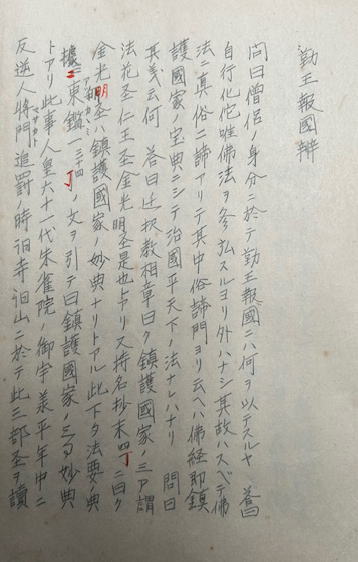 勤王報國辨
問曰僧侶ノ身分ニ於テ勤王報國ニハ何ヲ以テスルヤ 答曰
自行化佗唯佛法ヲ弘スルヨリ外ハナシ其故ハスベテ佛
法ニ真俗二諦アリテ其中俗諦門ヨリ云ヘハ佛経即鎮
護國家ノ宝典ニシテ治國平天下ノ法ナレハナリ 問曰
其義云何 答曰教相章曰ク鎮護國家ノ三ア謂
法花圣仁王圣金光明圣是也トアリ又持名抄末四丁ニ曰ク
金光明圣ハ鎮護國家ノ妙典ナリトアル此下タ法要典
據ニ東鑑一三十四丁ノ文ヲ引テ曰鎮護國家ノ三ア妙典
トアリ此事人皇六十一代朱雀院ノ御宇義平年中ニ
反逆人将門マサカト追罰ノ時旧寺旧山ニ於テ此三部圣ヲ讀